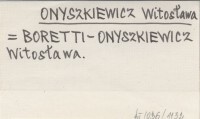 ONYSZKIEWICZ Witosława
= BORETTI-ONYSZKIEWICZ
Witosława.